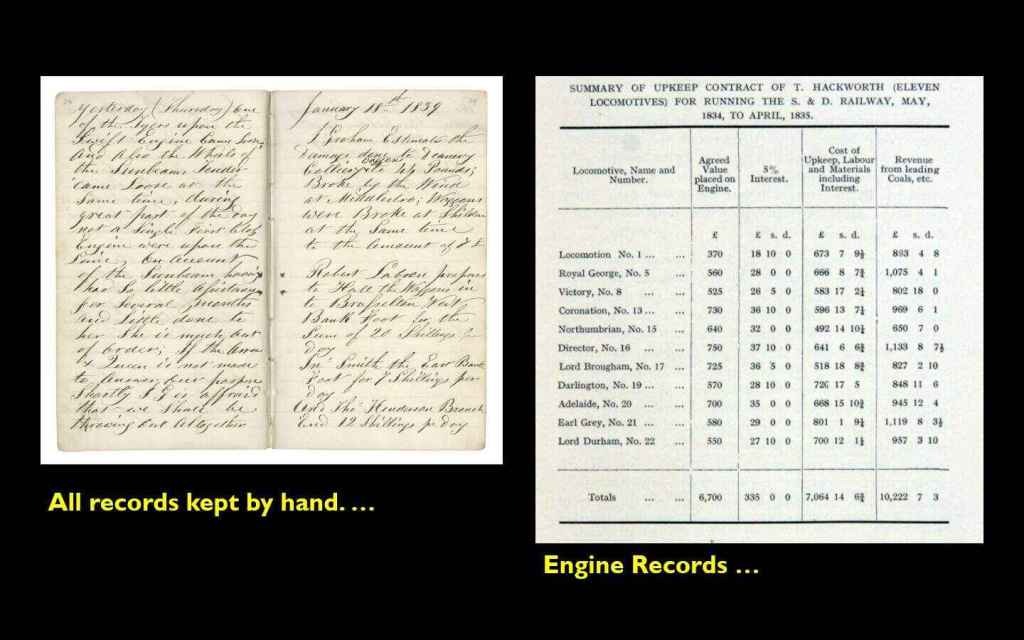 Yesterday (Thursday) One
of the Tyers upon the
Swift Engine Came loose
And also the Wheels of
the Sunbeams Tender
came Loose at the
Same time, during
great part of the day
not a Single first Class
Engine were upon the
Line, On Account
of the Sunbeam having
had So little
for Several months
and little done to
her She is much out
of order; If the Arrow
& Queen is not made
to Answer
Shortly I G is affraid
that we Shall be
throwing out altogether
January 18th 1839
J Graham Estimates the
Damage done to
Waggons
Broke by the Wind
at Middlesbro; Waggons
were Broke at Shildon
at the Same time
to the Amount of
Robert
to Hall the Waggons in
to Brusselton West
Bank Foot for the
Sum of 20 Shillings
day
Jno Smith the East Bank
Foot for 7 Shillings per
day
And Thos Henderson Branch
End 12 Shillings pr day
All records kept by hand. …
SUMMARY OF UPKEEP CONTRACT OF T. HACKWORTH (ELEVEN
LOCOMOTIVES) FOR RUNNING THE S. & D. RAILWAY, MAY,
1834, TO APRIL, 1835.
Locomotive, Name and Number. Agreed Value placed on Engine. 5% Interest. Cost of Upkeep, Labour and Materials including Interest. Revenue from leading Coals, etc.
£ £ s. d. £ s. d. £ s. d.
Locomotion No. 1 ... ... 370 18 10 0 673 7 9½ 893 4 8
Royal George, No. 5 ... 560 28 0 0 666 8 7¾ 1,075 4 1
Victory, No. 8 ... ... 525 26 5 0 583 17 2¼ 802 18 0
Coronation, No. 13 ... ... 730 36 10 0 596 13 7½ 969 6 1
Northumbrian, No. 15 ... 640 32 0 0 492 14 10¼ 650 7 0
Director, No. 16 ... ... 750 37 10 0 641 6 6¾ 1,133 8 7½
Lord Brougham, No. 17 ... 725 36 5 0 518 18 8¾ 827 2 10
Darlington, No. 19 ... ... 570 28 10 0 726 17 5 848 11 6
Adelaide, No. 20 ... ... 700 35 0 0 668 15 10¾ 945 12 4
Earl Grey, No. 21 ... ... 580 29 0 0 801 1 9¼ 1,119 8 3½
Lord Durham, No. 22 ... 550 27 10 0 700 12 1¼ 957 3 10
Totals ... ... 6,700 335 0 0 7,064 14 6¾ 10,222 7 3
Engine Records …